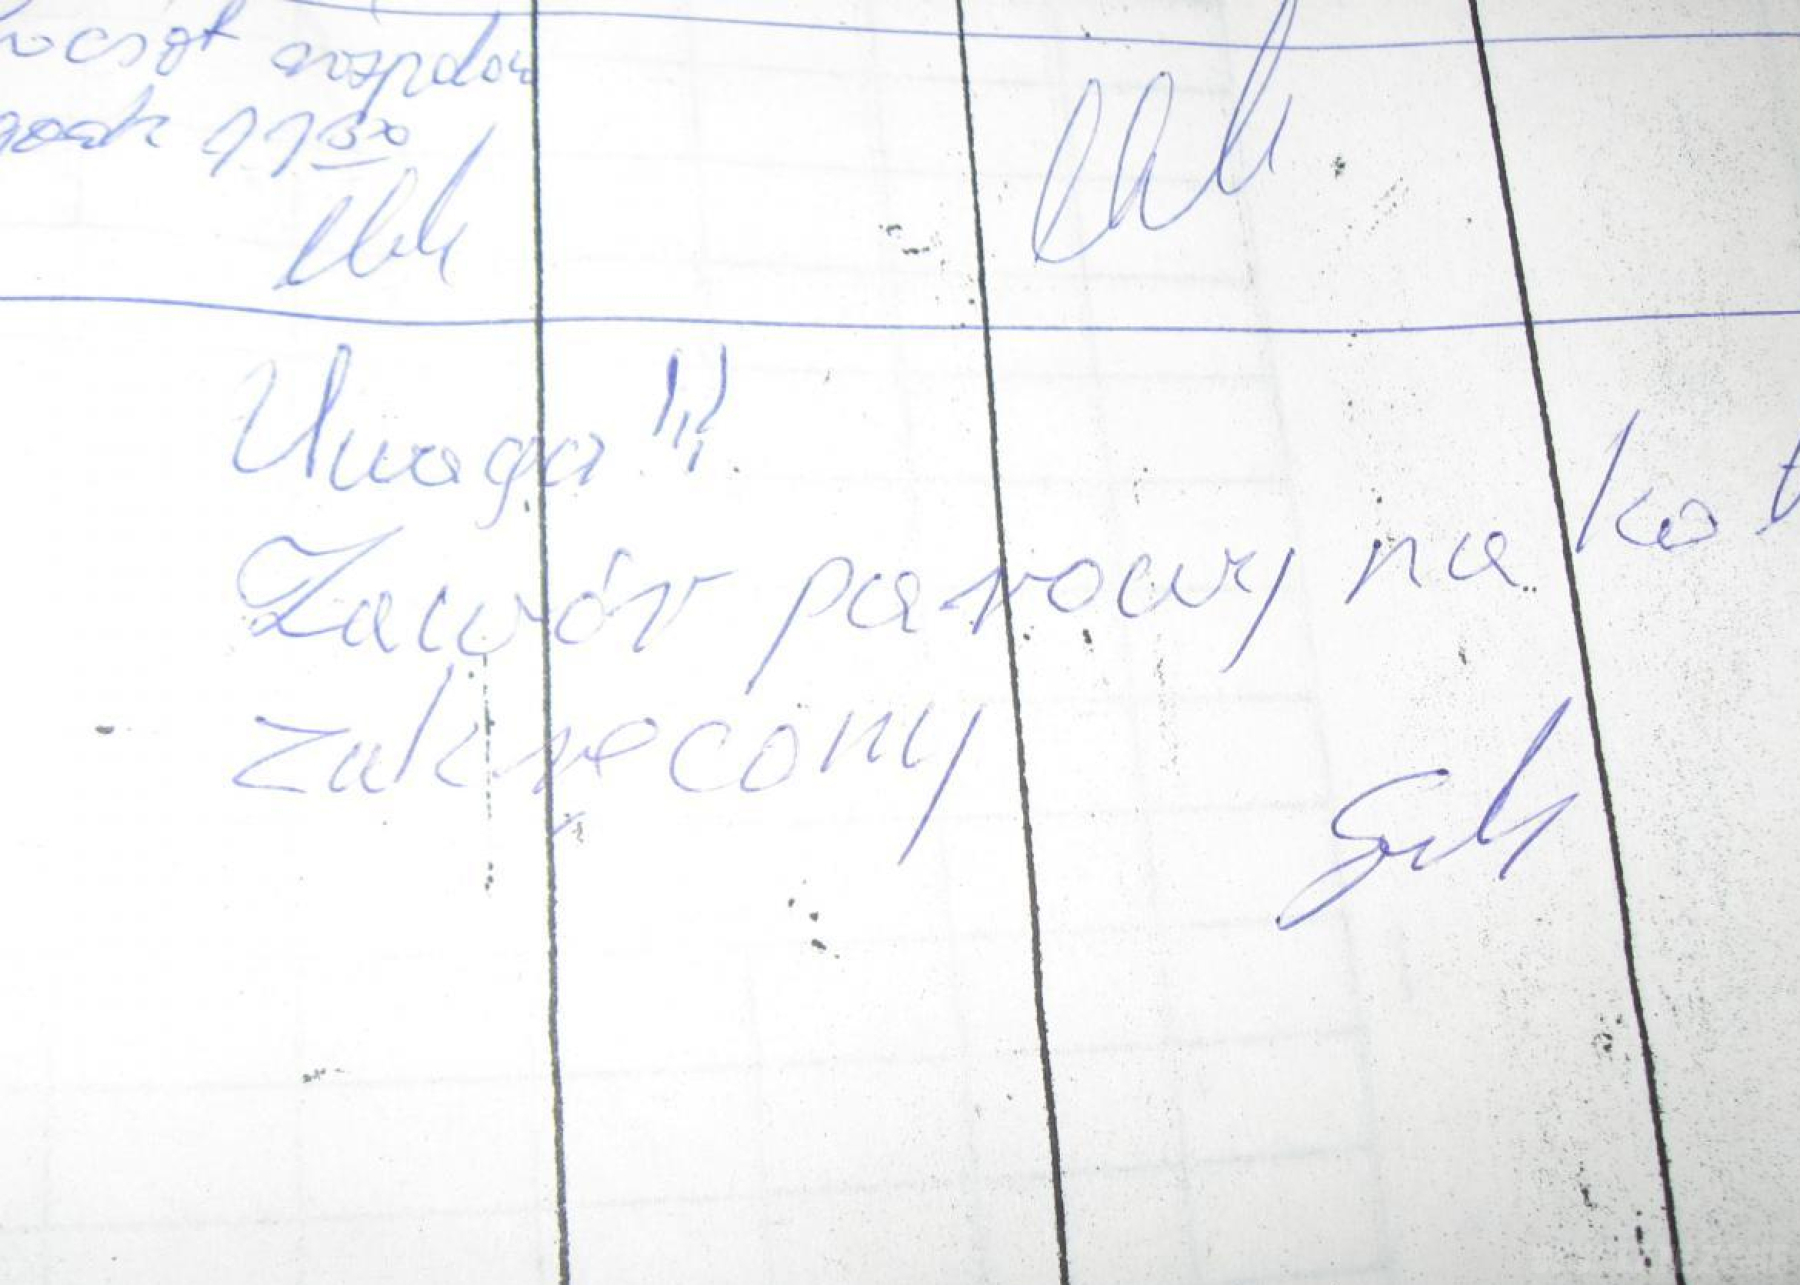 godz 11 30
Uwaga !!!
Zawór parowy na kot
zakręcony